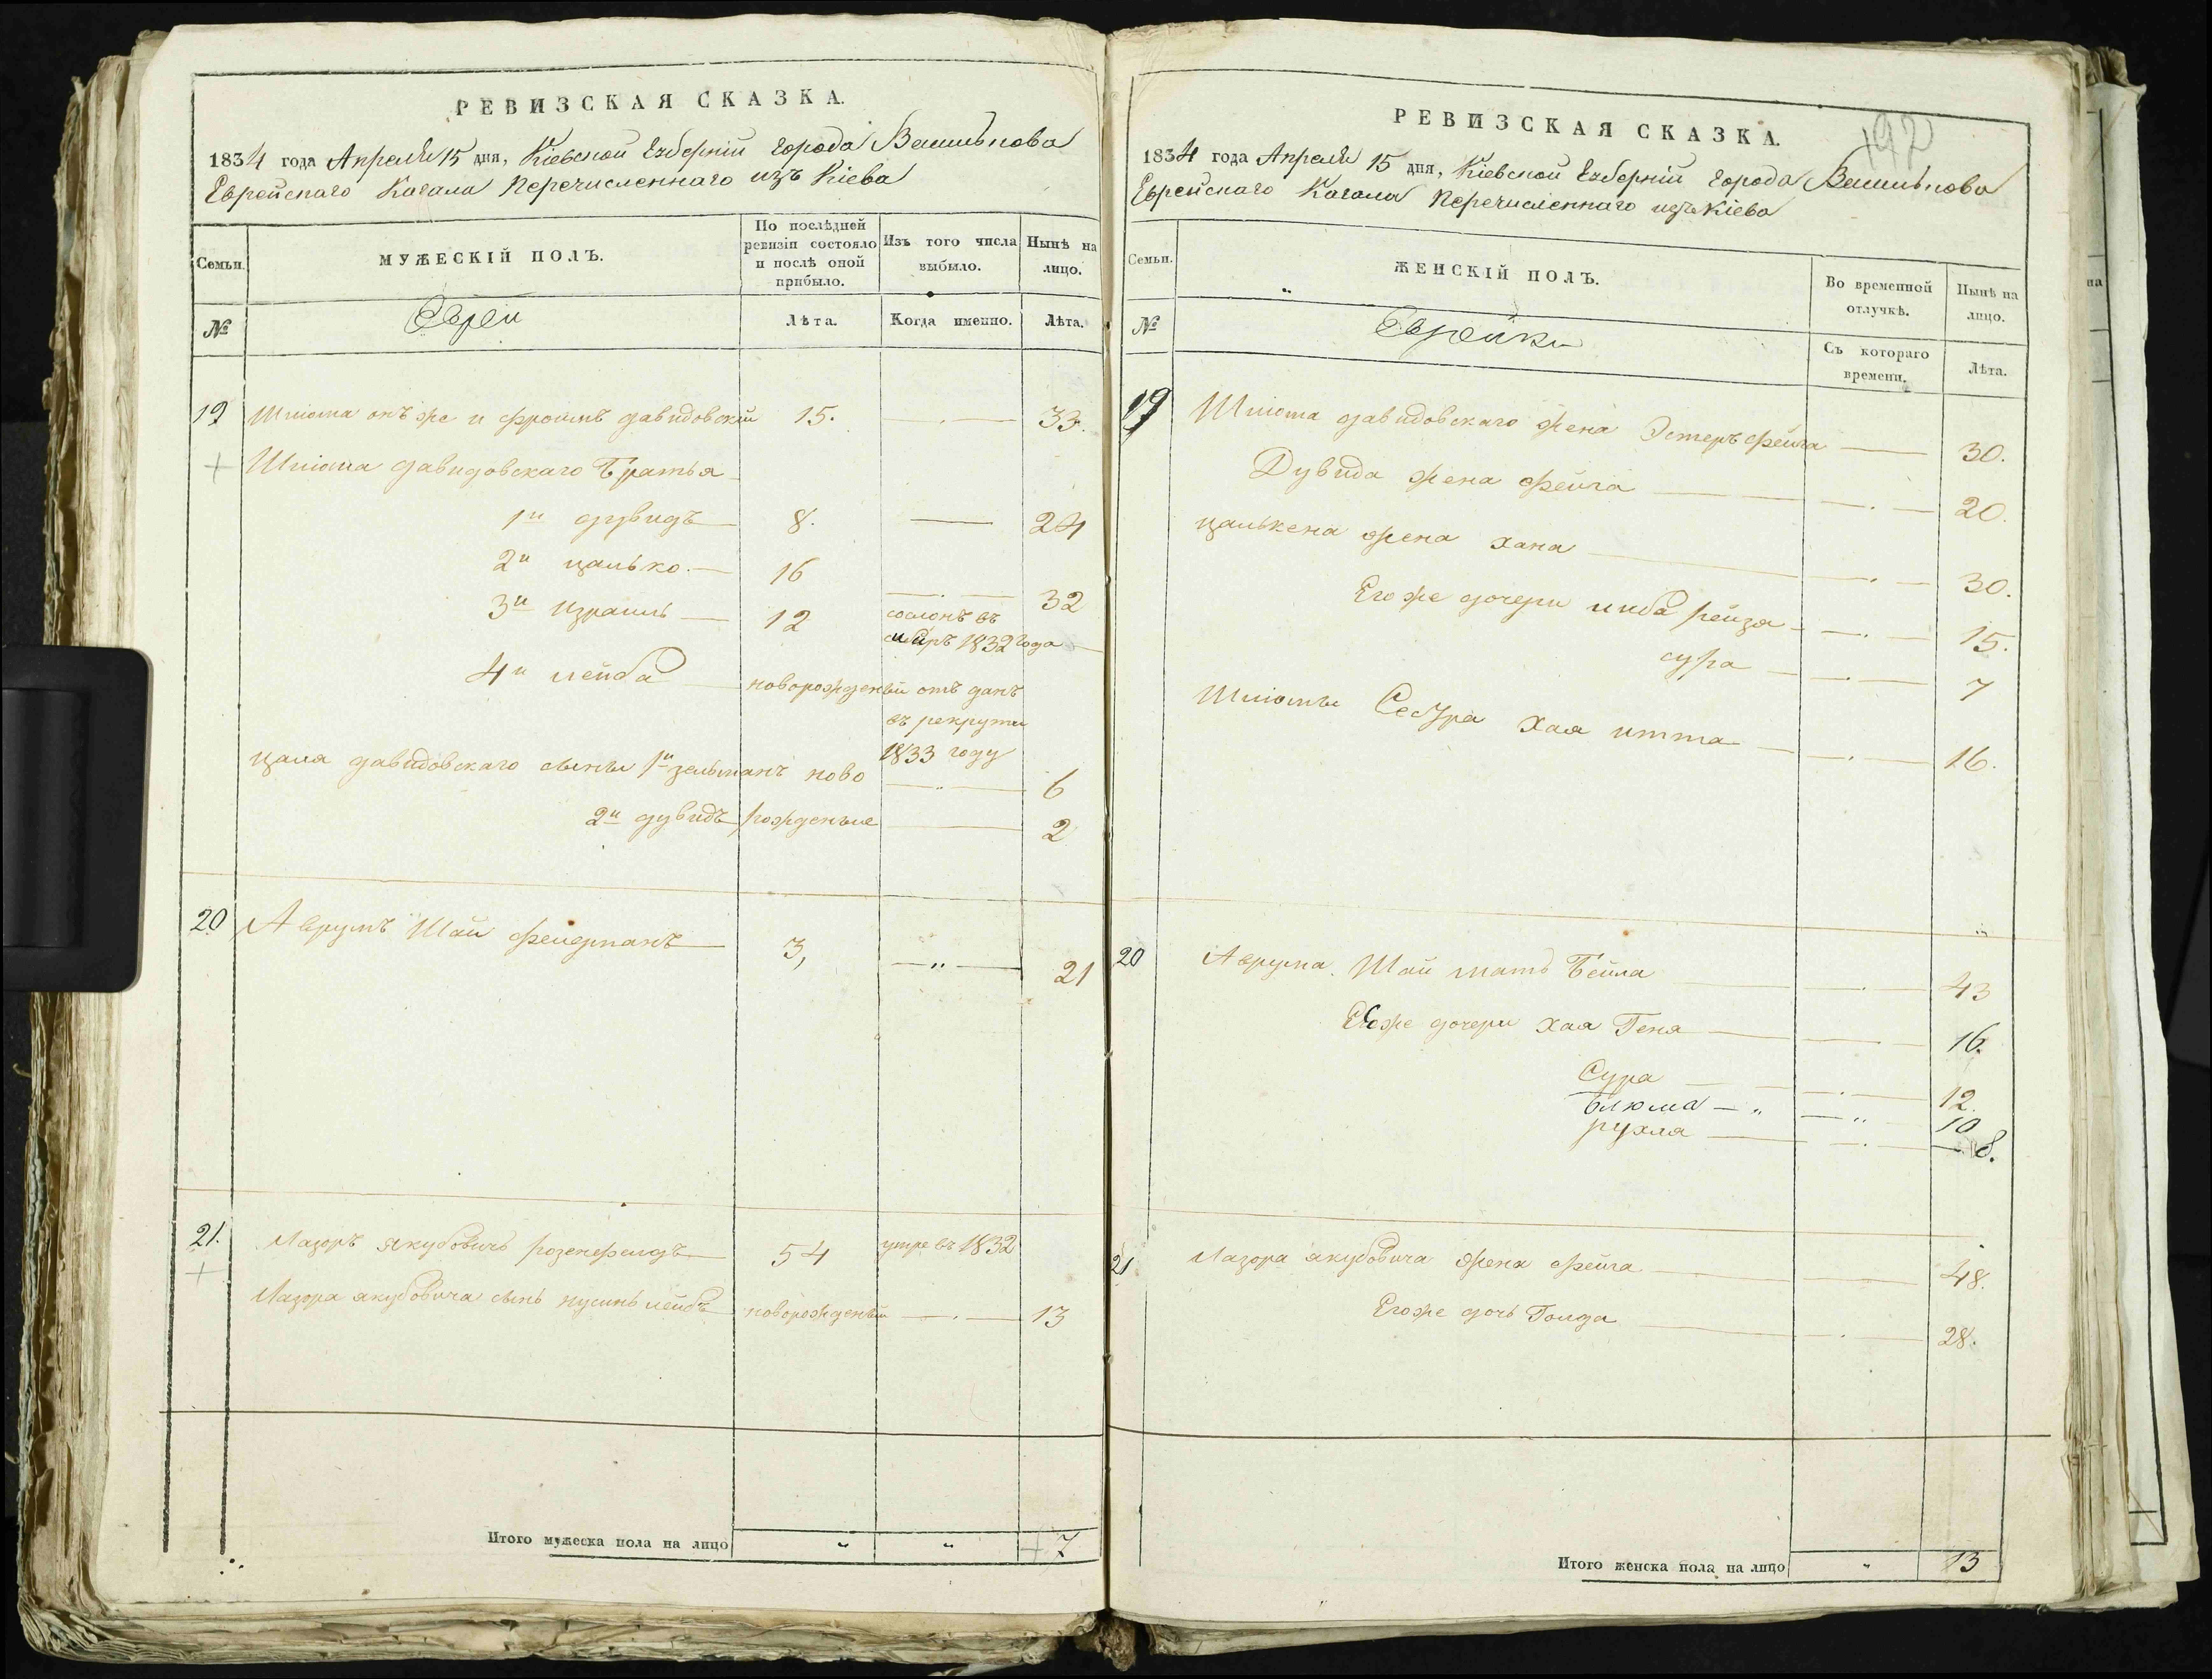 РЕВИЗСКАЯ СКАЗКА.
1834 года Апреля 15 дня, Кіевской Губерніи города Василькова
Еврейскаго Кагала перечисленнаго изъ Кіева
Семьи.
МУЖЕСКІЙ ПОЛЪ.
По послѣдней ревизіи состояло и послѣ оной прибыло.
Изъ того числа выбыло.
Нынѣ на лицо.
№
Евреи
Лѣта.
Когда именно.
Лѣта.
19 Шліома онъ же и Фроимъ давидовскій 15. 33.
Шліома давидовскаго Братья
1й дувидъ 8. 24
2й цалько. 16 32
3й Израиль 12 сослонъ въ сибиръ 1832 года
4й лейба новорожденый отъ данъ
въ рекруты
1833 году
цаля давидовскаго сыны 1й зельманъ ново 6
2й дувидъ рожденые 2
20 Аврумъ Шай 3, 21
21. Лазоръ якубовичъ розенфелдъ 54 умре въ 1832
Лазора якубовича сынъ нусинъ лейбъ новорожденый 13
Итого мужеска пола на лицо " " 7
РЕВИЗСКАЯ СКАЗКА.
192
1834 года Апреля 15 дня, Кіевской Губерніи города Василькова
Еврейскаго Кагала перечисленнаго изъ Кіева
Семьи.
ЖЕНСКІЙ ПОЛЪ.
Во временной отлучкѣ.
Нынѣ на лицо.
№
Еврейки
Съ котораго времени.
Лѣта.
19 Шліома давидовскаго жена Эстеръ фейга 30.
Дувида жена фейга 20.
цалькена жена хана 30.
Его же дочери либа рейза 15.
сура 7
Шліомы Сестра хая итта 16.
20 Аврума Шай мать Бейла 43
Еёже дочери хая Геня 16.
Сура 12.
блюма " " 10
рухля 8.
21 Лазора якубовича жена фейга 48.
Егоже дочь Голда 28.
Итого женска пола на лицо " 13